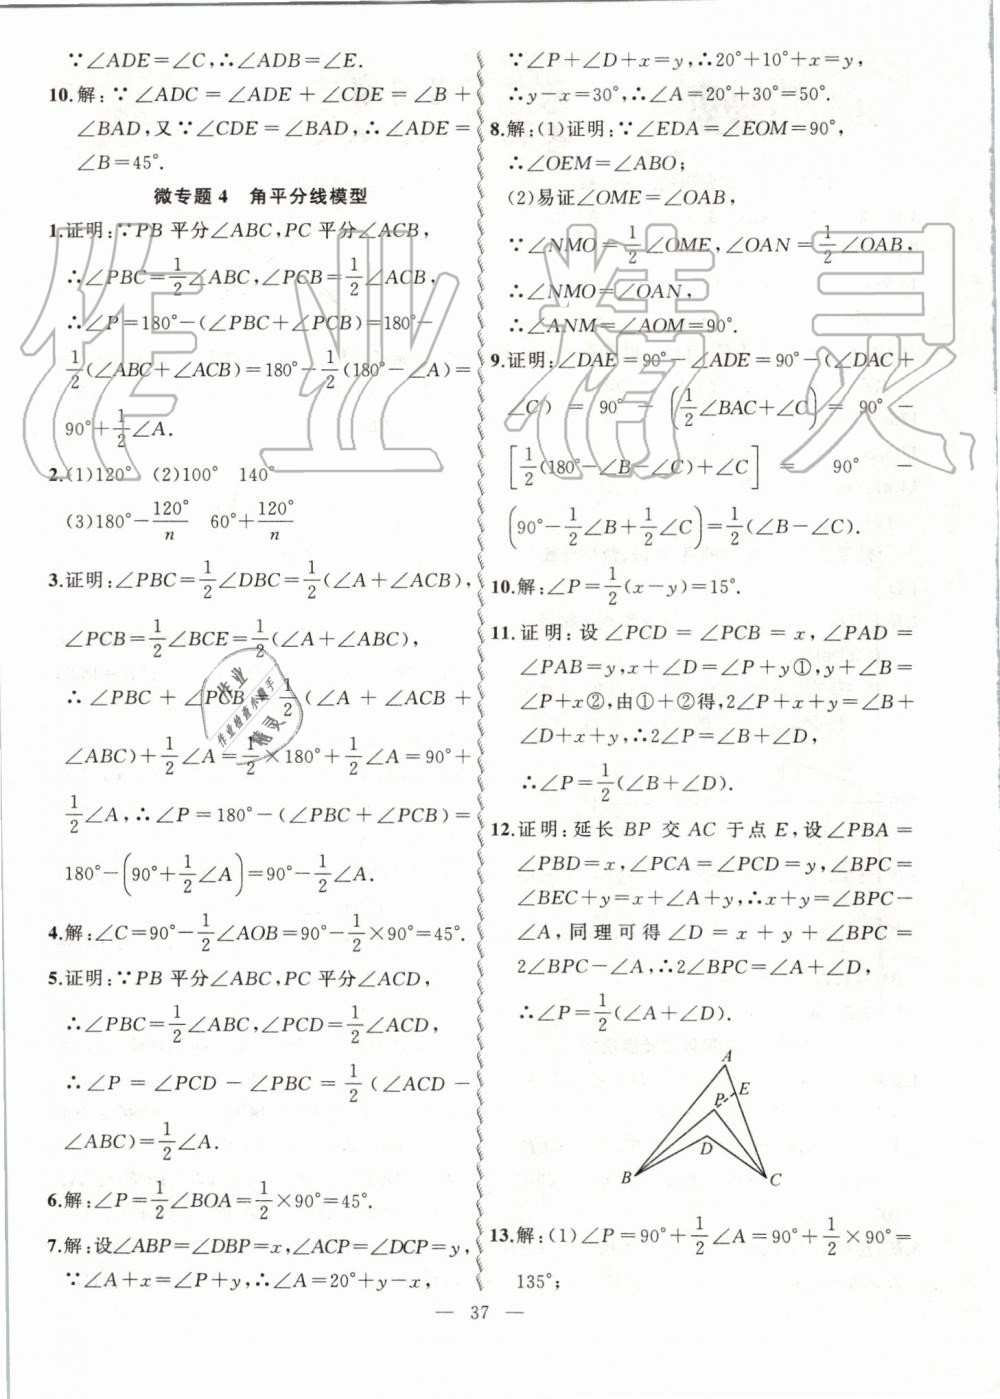 ∵∠ADE=∠C,∴∠ADB=∠E.
10.解:∵∠ADC=∠ADE+∠CDE=∠B+
∠BAD,又∵∠CDE=∠BAD,∴∠ADE=
∠B=45°.
微专题4 角平分线模型
1.证明:∵PB平分∠ABC,PC平分∠ACB,
∴∠PBC=1/2∠ABC,∠PCB=1/2∠ACB,
∴∠P=180°-(∠PBC+∠PCB)=180°-
1/2(∠ABC+∠ACB)=180°-1/2(180°-∠A)=
90°+1/2∠A.
2.(1)120° (2)100° 140°
(3)180°-120°/n 60°+120°/n
3.证明:∠PBC=1/2∠DBC=1/2(∠A+∠ACB),
∠PCB=1/2∠BCE=1/2(∠A+∠ABC),
∴∠PBC+∠PCB=1/2(∠A+∠ACB+
∠ABC)+1/2∠A=1/2×180°+1/2∠A=90°+
1/2∠A,∴∠P=180°-(∠PBC+∠PCB)=
180°-(90°+1/2∠A)=90°-1/2∠A.
4.解:∠C=90°-1/2∠AOB=90°-1/2×90°=45°.
5.证明:∵PB平分∠ABC,PC平分∠ACD,
∴∠PBC=1/2∠ABC,∠PCD=1/2∠ACD,
∴∠P=∠PCD-∠PBC=1/2(∠ACD-
∠ABC)=1/2∠A.
6.解:∠P=1/2∠BOA=1/2×90°=45°.
7.解:设∠ABP=∠DBP=x,∠ACP=∠DCP=y,
∵∠A+x=∠P+y,∴∠A=20°+y-x,
∵∠P+∠D+x=y,∴20°+10°+x=y,
∴y-x=30°,∴∠A=20°+30°=50°.
8.解:(1)证明:∵∠EDA=∠EOM=90°,
∴∠OEM=∠ABO;
(2)易证∠OME=∠OAB,
∵∠NMO=1/2∠OME,∠OAN=1/2∠OAB,
∴∠NMO=∠OAN,
∴∠ANM=∠AOM=90°.
9.证明:∠DAE=90°-∠ADE=90°-(∠DAC+
∠C)=90°-(1/2∠BAC+∠C)=90°-
[1/2(180°-∠B-∠C)+∠C]=90°-
(90°-1/2∠B+1/2∠C)=1/2(∠B-∠C).
10.解:∠P=1/2(x-y)=15°.
11.证明:设∠PCD=∠PCB=x,∠PAD=
∠PAB=y,x+∠D=∠P+y①,y+∠B=
∠P+x②,由①+②得,2∠P+x+y=∠B+
∠D+x+y,∴2∠P=∠B+∠D,
∴∠P=1/2(∠B+∠D).
12.证明:延长BP交AC于点E,设∠PBA=
∠PBD=x,∠PCA=∠PCD=y,∠BPC=
∠BEC+y=x+∠A+y,∴x+y=∠BPC-
∠A,同理可得∠D=x+y+∠BPC=
2∠BPC-∠A,∴2∠BPC=∠A+∠D,
∴∠P=1/2(∠A+∠D).
A
E
P
D
B
C
13.解:(1)∠P=90°+1/2∠A=90°+1/2×90°=
135°;
— 37 —
作业精灵
作业
作业检查小助手
精灵